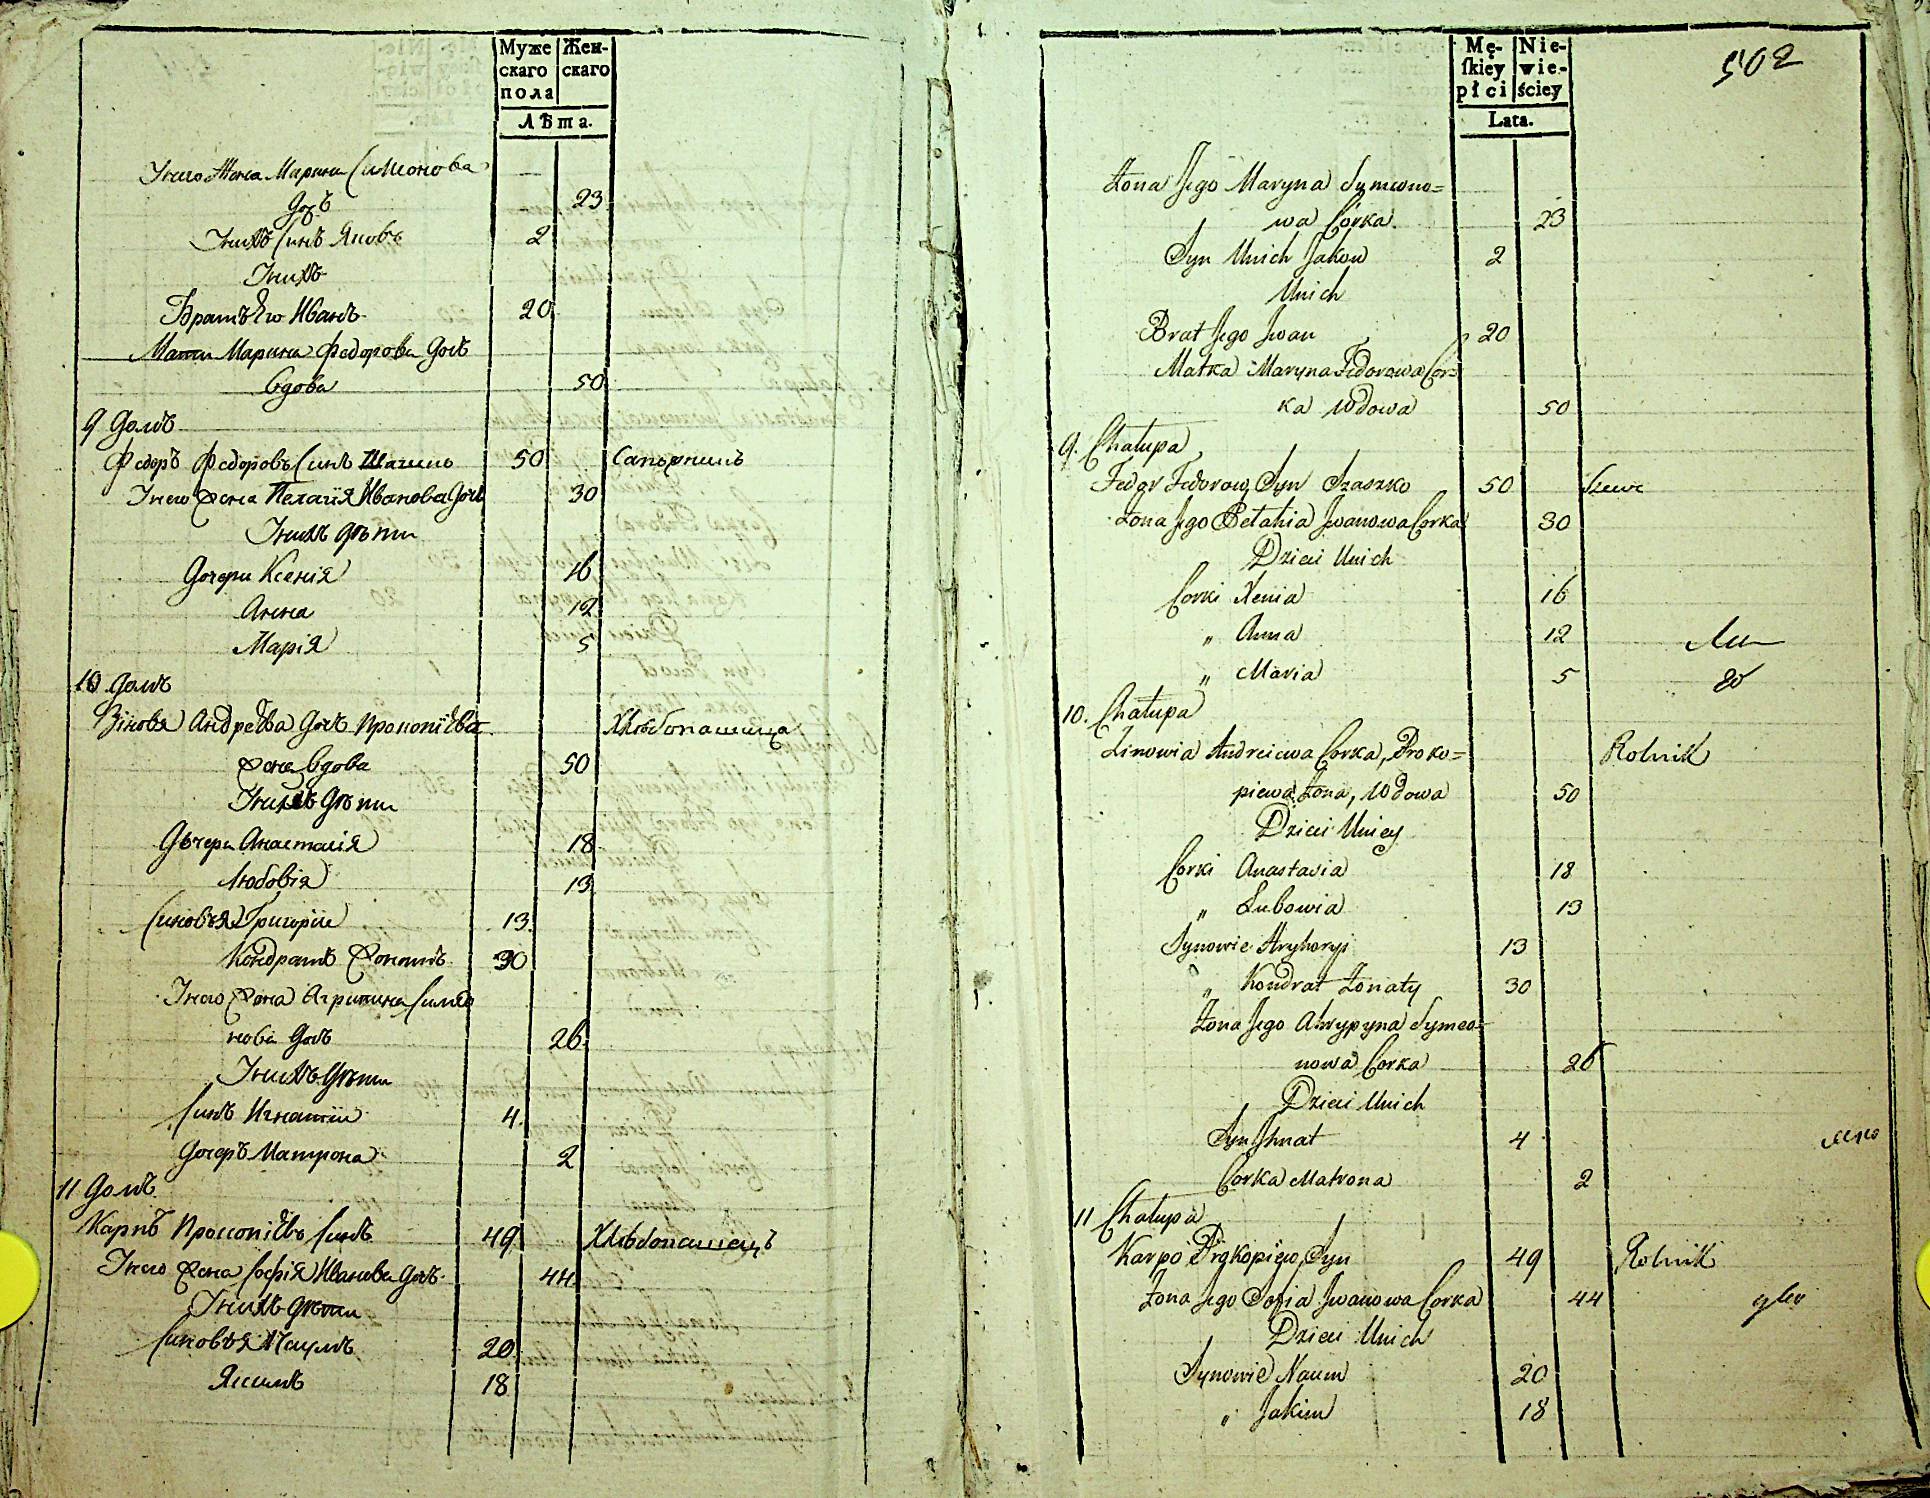 Муже скаго пола
Жен- скаго
Лѣта.
Унего Жена Марина Симонова
Дочь 23
Унихъ Синъ Яковъ 2
Унихъ
Братъ Его Иванъ 20
Мати Марина Федорова Дочь
Вдова 50
9 Домъ
Федоръ Федоровъ Синъ 50 Сапожникъ
Унего Жена Пелагія Иванова Дочь 30
Унихъ Дѣти
Дочери Ксенія 16
Анна 12
Марія 5
10 Домъ
Зіновя Андреева Дочь Прокопіева Хлѣбопашица
Жена Вдова 50
Унихъ Дѣти
Дочери Анастасія 18
Любовія 13
Синовья Григорій 13
Кондратъ Жонатъ 30
Унего Жена Агрипина Симео
нова Дочь 26
Унихъ Дѣти
Синъ Игнатій 4
Дочеръ Матрона 2
11 Домъ
Карпъ Прокопіевъ Синъ 49 Хлѣбопашецъ
Унего Жена Софія Иванова Дочь 44
Унихъ Дѣти
Синовья Наумъ 20
Якимъ 18
Mę- ſkiey płci
Nie- wie- ściey
Lata.
502
Żona Jego Maryna Symeono=
wa Corka 23
Syn Unich Jakow 2
Unich
Brat Jego Jwan 20
Matka Maryna Fedorowa Cor=
ka Wdowa 50
9. Chałupa
Fedor Fedorow Syn Szaszko 50 Szewc
Żona Jego Pełahia Jwanowa Corka 30
Dzieci Unich
Corki Xenia 16
„ Anna 12
„ Maria 5
10. Chałupa
Zinowia Andreiewa Corka, Proko= Rolnik
piewa Żona, Wdowa 50
Dzieci Uniey
Corki Anastasia 18
„ Lubowia 13
Synowie Hryhoryi 13
„ Kondrat Żonaty 30
Żona Jego Ahrypyna Symeo=
nowa Corka 26
Dzieci Unich
Syn Jhnat 4
Corka Matrona 2
11 Chałupa
Karpo Prokopiew Syn 49 Rolnik
Żona Jego Sofia Jwanowa Corka 44
Dzieci Unich
Synowie Naum 20
„ Jakim 18